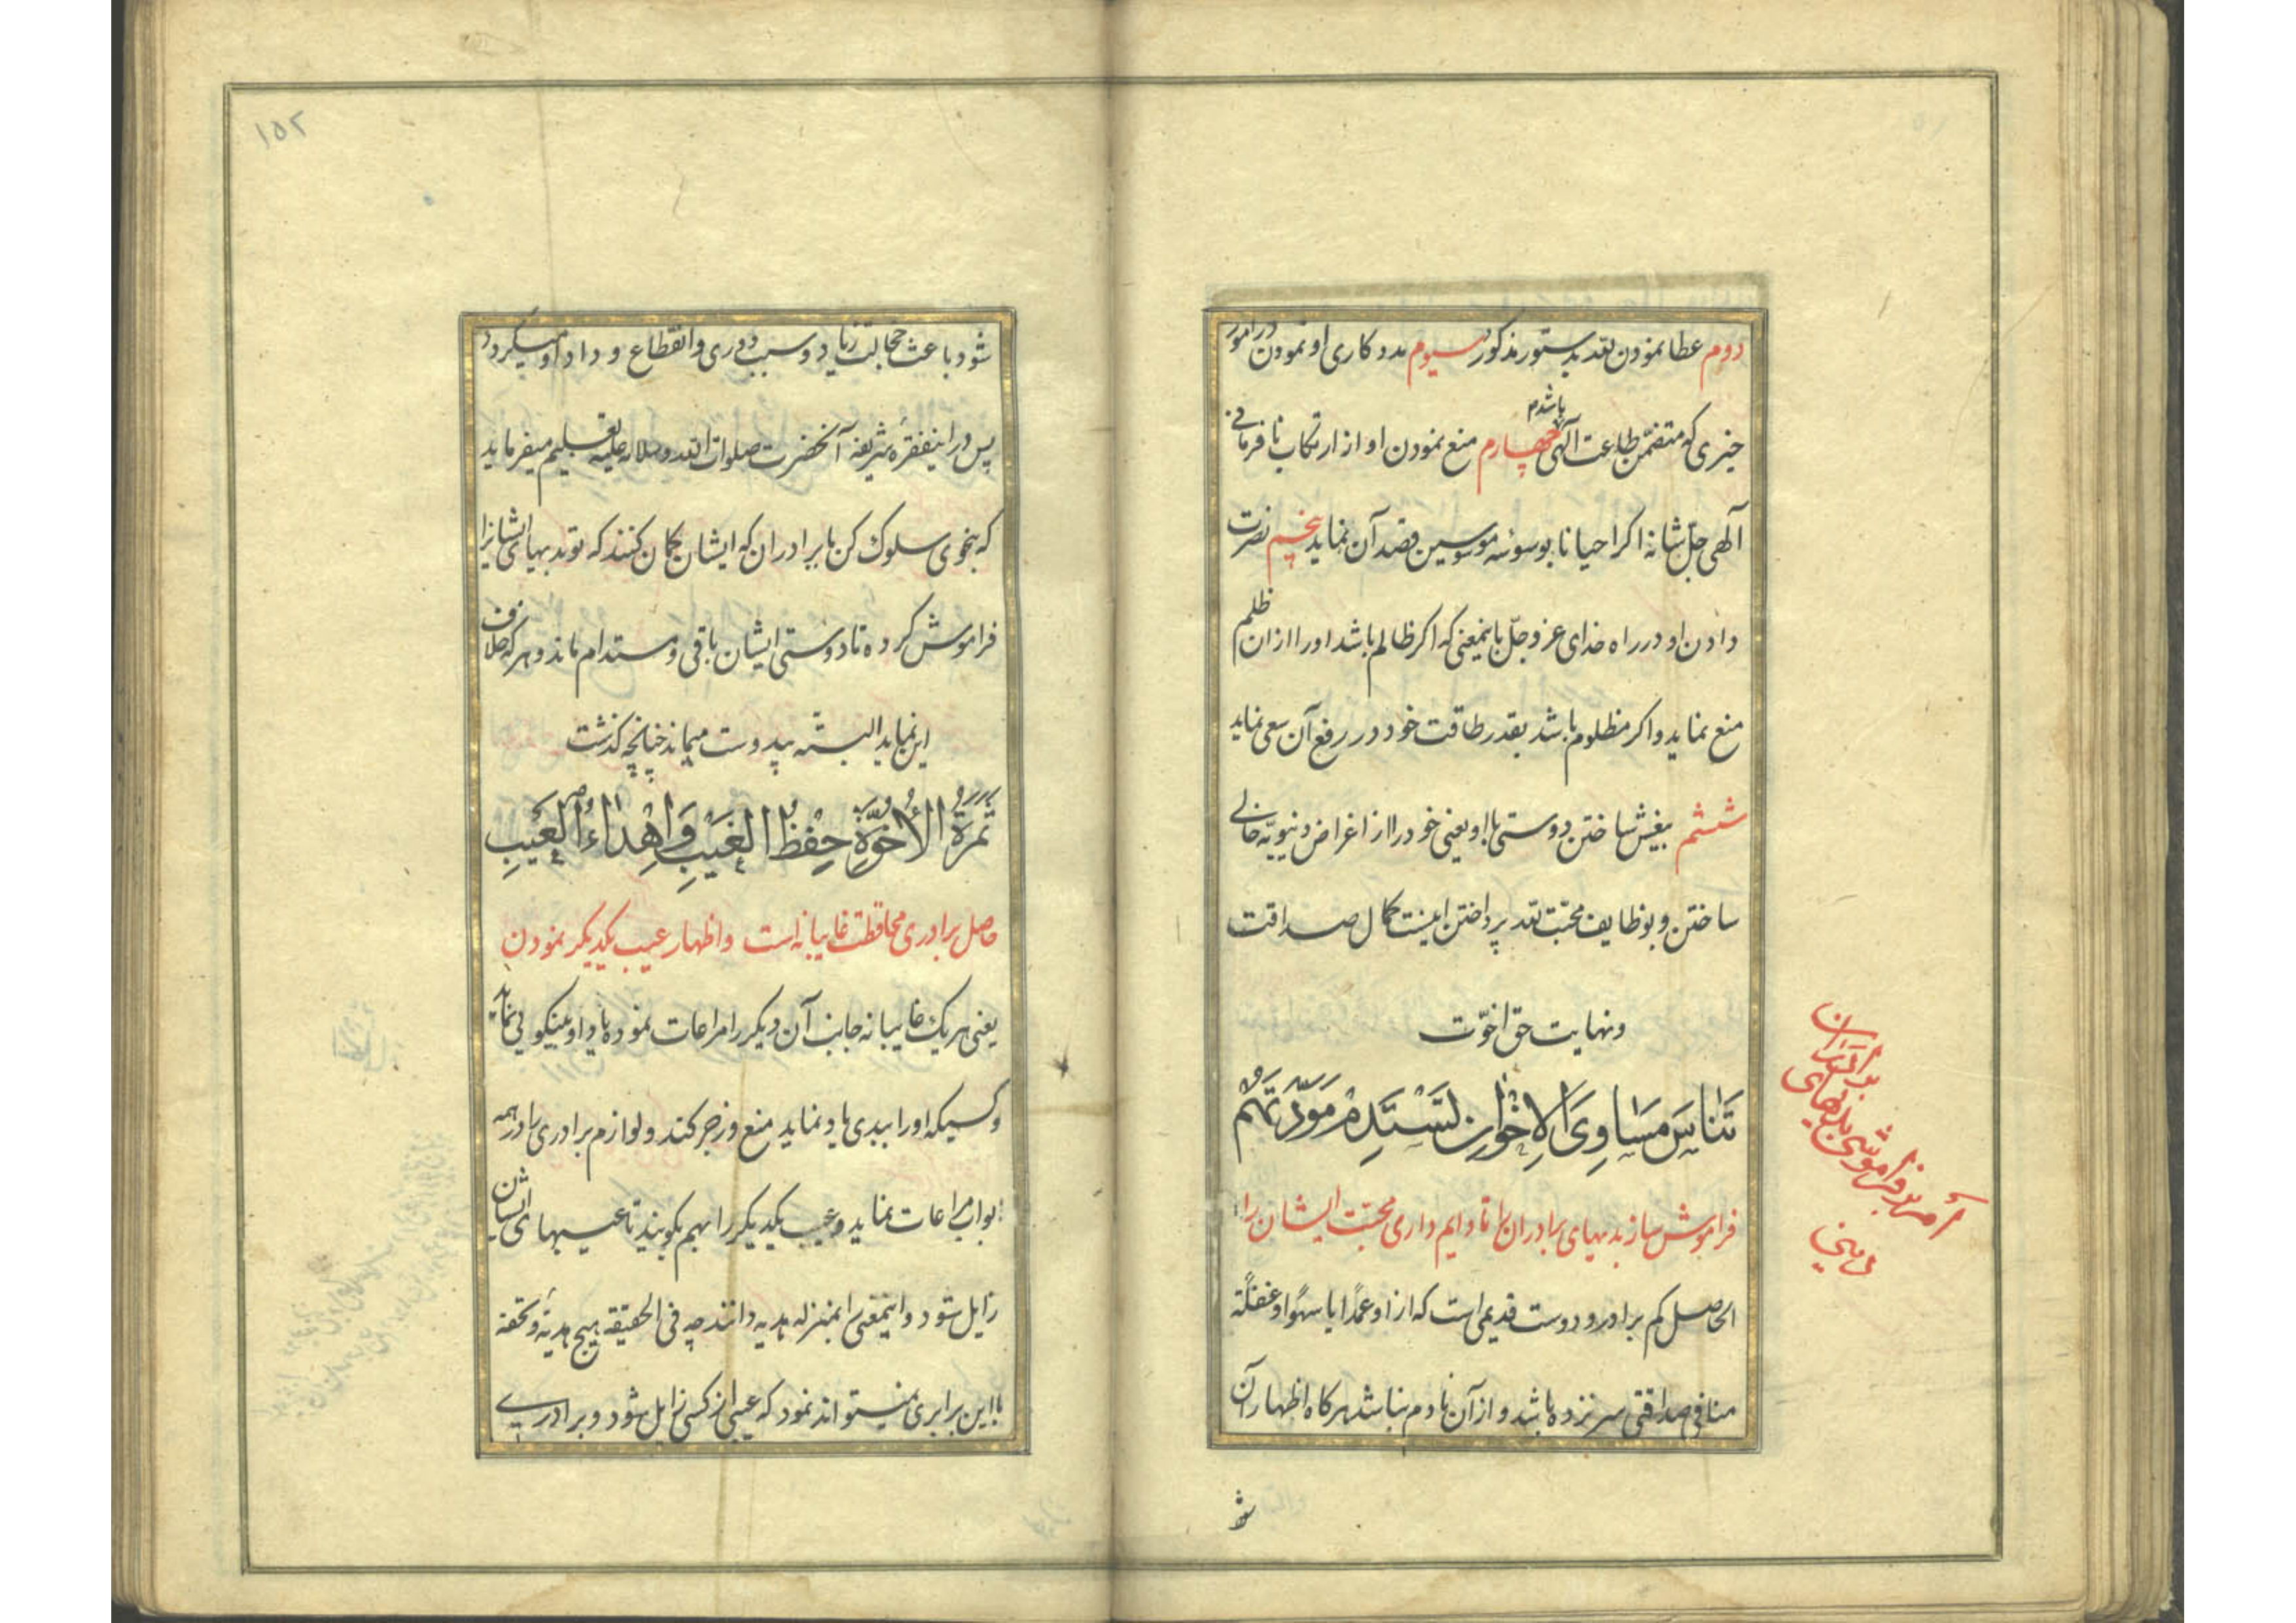 دوم عطا نمودن لله بدستور مذکور سیوم مددکاری او نمودن در امور
خیری که متضمن طاعت الهی باشد چهارم منع نمودن او از ارتکاب نافرمانی
الهی جل شانه اکر احیانا بوسوسه موسوسین قصد آن نماید پنجم نصرت
دادن او در راه خدای عز و جل باینمعنی که اکر ظالم باشد او را از ان ظلم
منع نماید و اکر مظلوم باشد بقدر طاقت خود در رفع آن سعی نماید
ششم بیغش ساختن دوستی با او یعنی خود را از اغراض دنیویه خالی
ساختن و بوظایف محبت لله پرداختن اینست کمال صداقت
و نهایت حق اخوت
تَنَاسَ مَسَاوِیَ الاِخْوَانِ تَسْتَدِمْ مَوَدَّتَهُمْ
فراموش ساز بدیهای برادران را تا دایم داری محبت ایشان را
الحاصل کم برادر و دوست قدیمی است که از او عمدًا یا سهوًا و غفلةً
منافی صداقتی سر نزده باشد و از آن نادم نباشد هرکاه اظهار آن
شو
امر بفراموشی بدیهای برادران
دینی
۱۵۲
شود باعث خجالت زیاد و سبب دوری و انقطاع وداد او میکردد
پس در اینفقرهٔ شریفه آنحضرت صلوات الله و سلامه علیه تعلیم میفرماید
که بنحوی سلوک کن با برادران که ایشان کمان کنند که تو بدیهای ایشانرا
فراموش کرده تا دوستی ایشان باقی و مستدام ماند و هر که خلاف
این نماید البته بیدوست میماند چنانچه کذشت
ثَمَرَةُ الأُخُوَّةِ حِفْظُ الغَیْبِ وَاِهْدَاءُ العَیْبِ
حاصل برادری محافظت غایبانه است و اظهار عیب یکدیکر نمودن
یعنی هر یک غایبانه جانب آن دیکر را مراعات نموده یاد او بنیکویی نماید
و کسیکه او را ببدی یاد نماید منع و زجر کند و لوازم برادری را در همه
ابواب مراعات نماید و عیب یکدیکر را بهم بکویند تا عیبهای ایشان
زایل شود و اینمعنی را بمنزله هدیه دانند چه فی الحقیقة هیچ هدیه و تحفه
با این برابری نمیتواند نمود که عیبی از کسی زایل شود و برادری